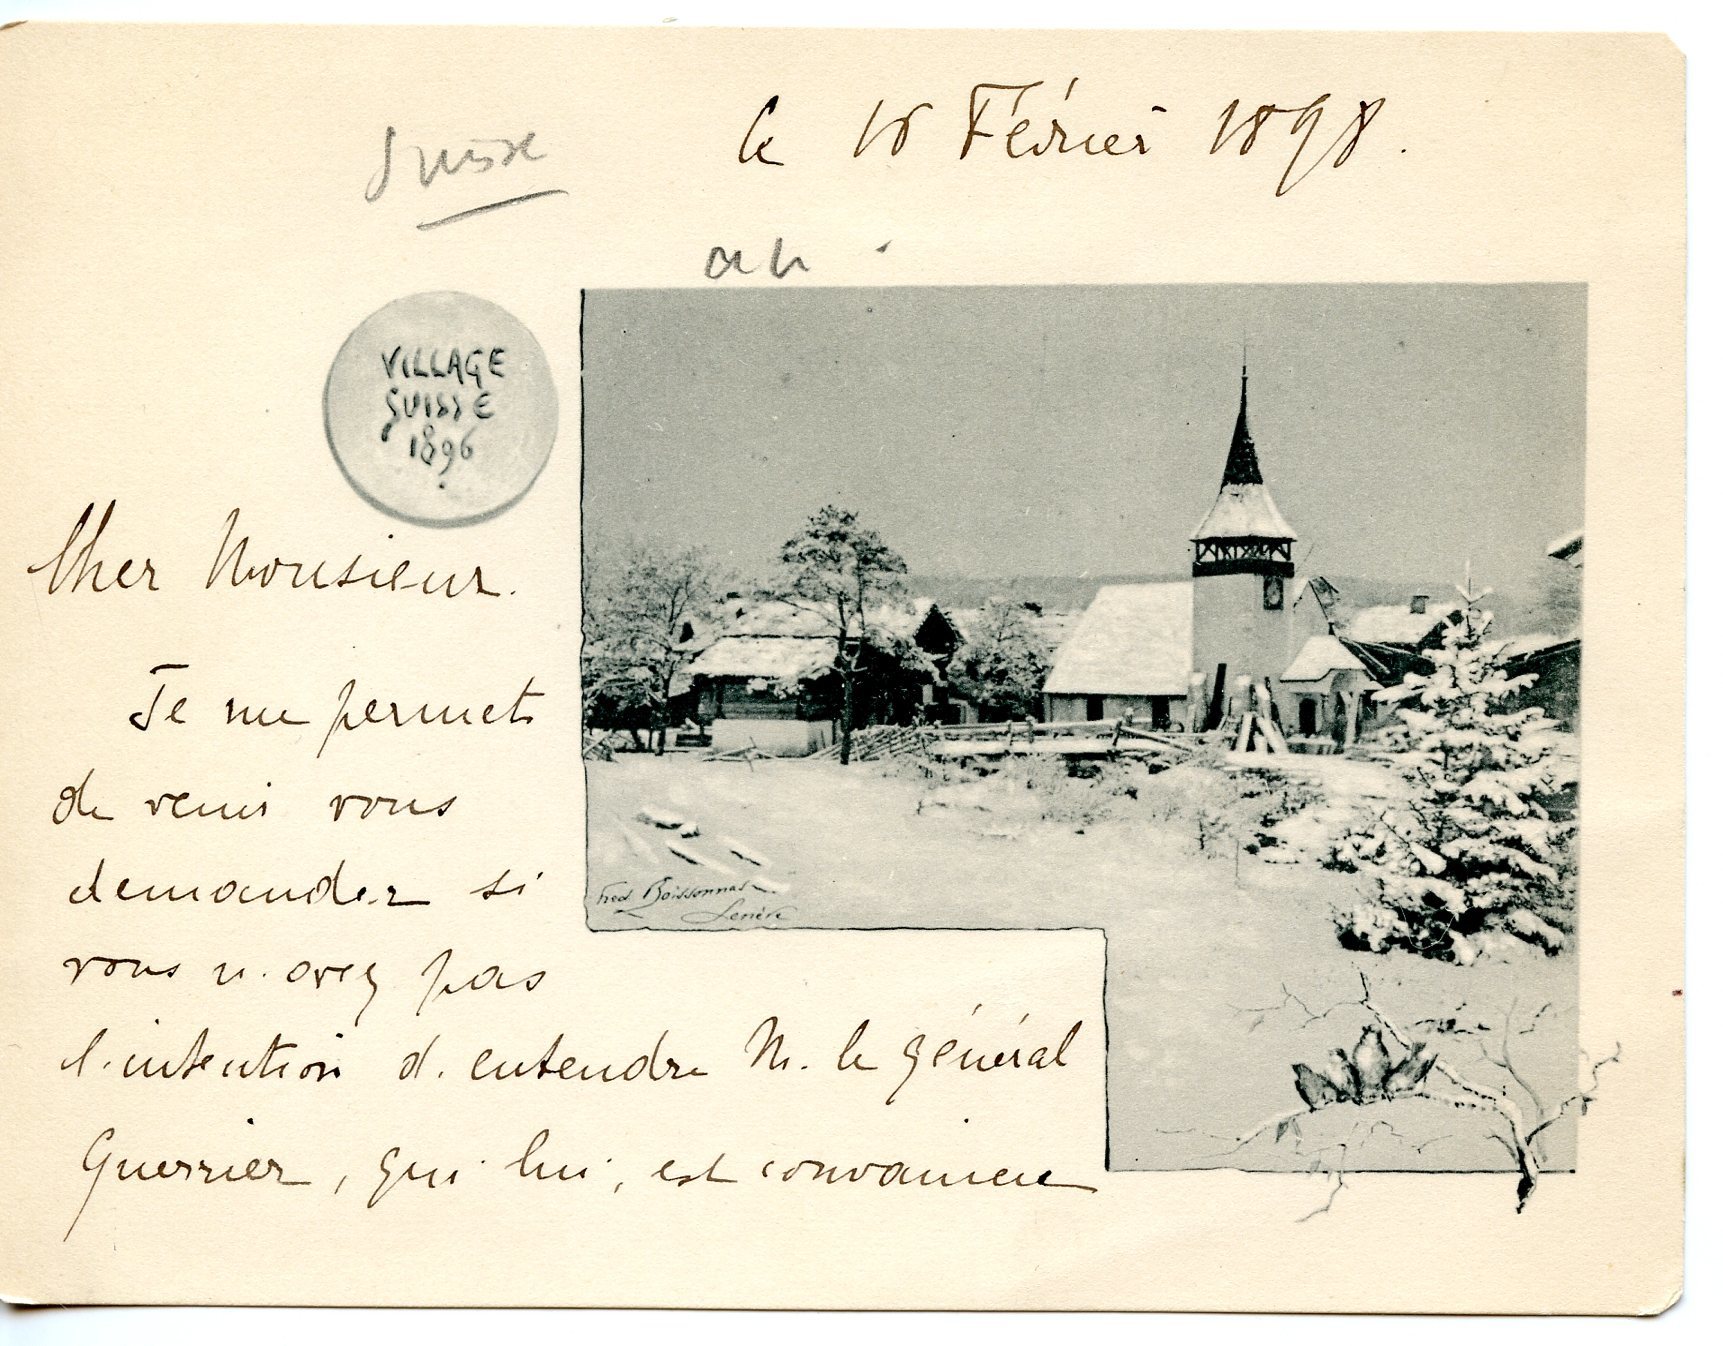 Suisse
le 16 Février 1898.
VILLAGE
SUISSE
1896
Cher Monsieur.
Je me permets
de venir vous
demander si
vous n'avez pas
l'intention d'entendre M. le général
Guerrier, qui lui, est convaincu
Fred. Boissonnas
Genève